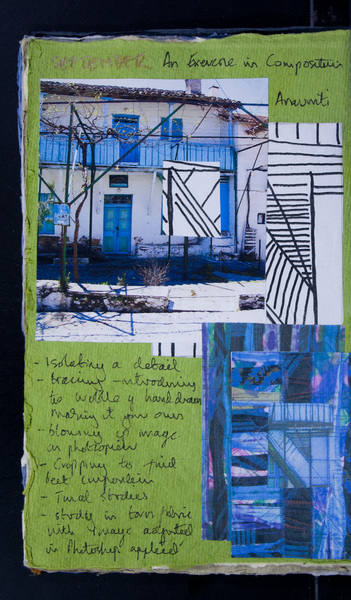 SEPTEMBER An Exercise in Composition
Anavriti
- Isolating a detail
- tracing - introducing
to wobble of hand drawn
making it your own
- blowing up image
on photocopier
- Cropping to find
best composition
- Tonal studies
- studies in torn fabric
with image adapted
in Photoshop applied